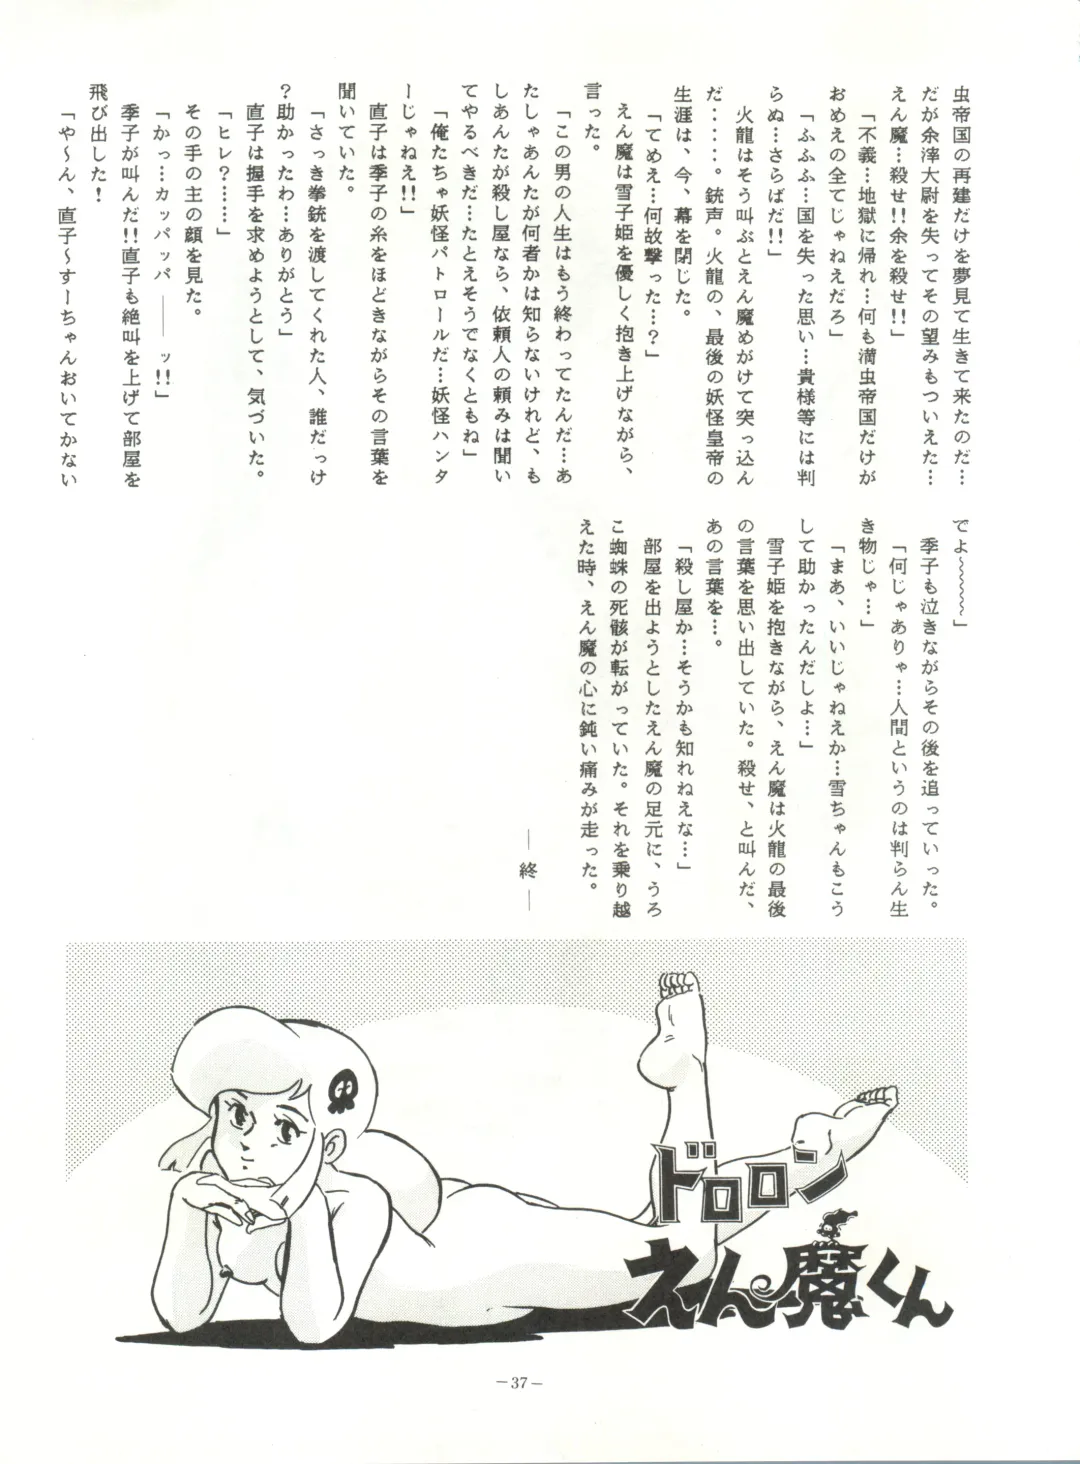 虫帝国の再建だけを夢見て生きて来たのだ…
だが余滓大尉を失ってその望みもついえた…
えん魔…殺せ!!余を殺せ!!」
「不義…地獄に帰れ…何も満虫帝国だけが
おめえの全てじゃねえだろ」
「ふふふ…国を失った思い…貴様等には判
らぬ…さらばだ!!」
火龍はそう叫ぶとえん魔めがけて突っ込ん
だ‥‥‥。銃声。火龍の、最後の妖怪皇帝の
生涯は、今、幕を閉じた。
「てめえ…何故撃った…?」
えん魔は雪子姫を優しく抱き上げながら、
言った。
「この男の人生はもう終わってたんだ…あ
たしゃあんたが何者かは知らないけれど、も
しあんたが殺し屋なら、依頼人の頼みは聞い
てやるべきだ…たとえそうでなくともね」
「俺たちゃ妖怪パトロールだ…妖怪ハンタ
ーじゃねえ!!」
直子は季子の糸をほどきながらその言葉を
聞いていた。
「さっき拳銃を渡してくれた人、誰だっけ
?助かったわ…ありがとう」
直子は握手を求めようとして、気づいた。
「ヒレ?……」
その手の主の顔を見た。
「かっ…カッパッパ――ッ!!」
季子が叫んだ!!直子も絶叫を上げて部屋を
飛び出した!
「や〜ん、直子〜すーちゃんおいてかない
でよ〜〜〜〜」
季子も泣きながらその後を追っていった。
「何じゃありゃ…人間というのは判らん生
き物じゃ…」
「まあ、いいじゃねえか…雪ちゃんもこう
して助かったんだしよ…」
雪子姫を抱きながら、えん魔は火龍の最後
の言葉を思い出していた。殺せ、と叫んだ、
あの言葉を…。
「殺し屋か…そうかも知れねえな…」
部屋を出ようとしたえん魔の足元に、うろ
こ蜘蛛の死骸が転がっていた。それを乗り越
えた時、えん魔の心に鈍い痛みが走った。
―終―
ドロロン
えん魔くん
―37―